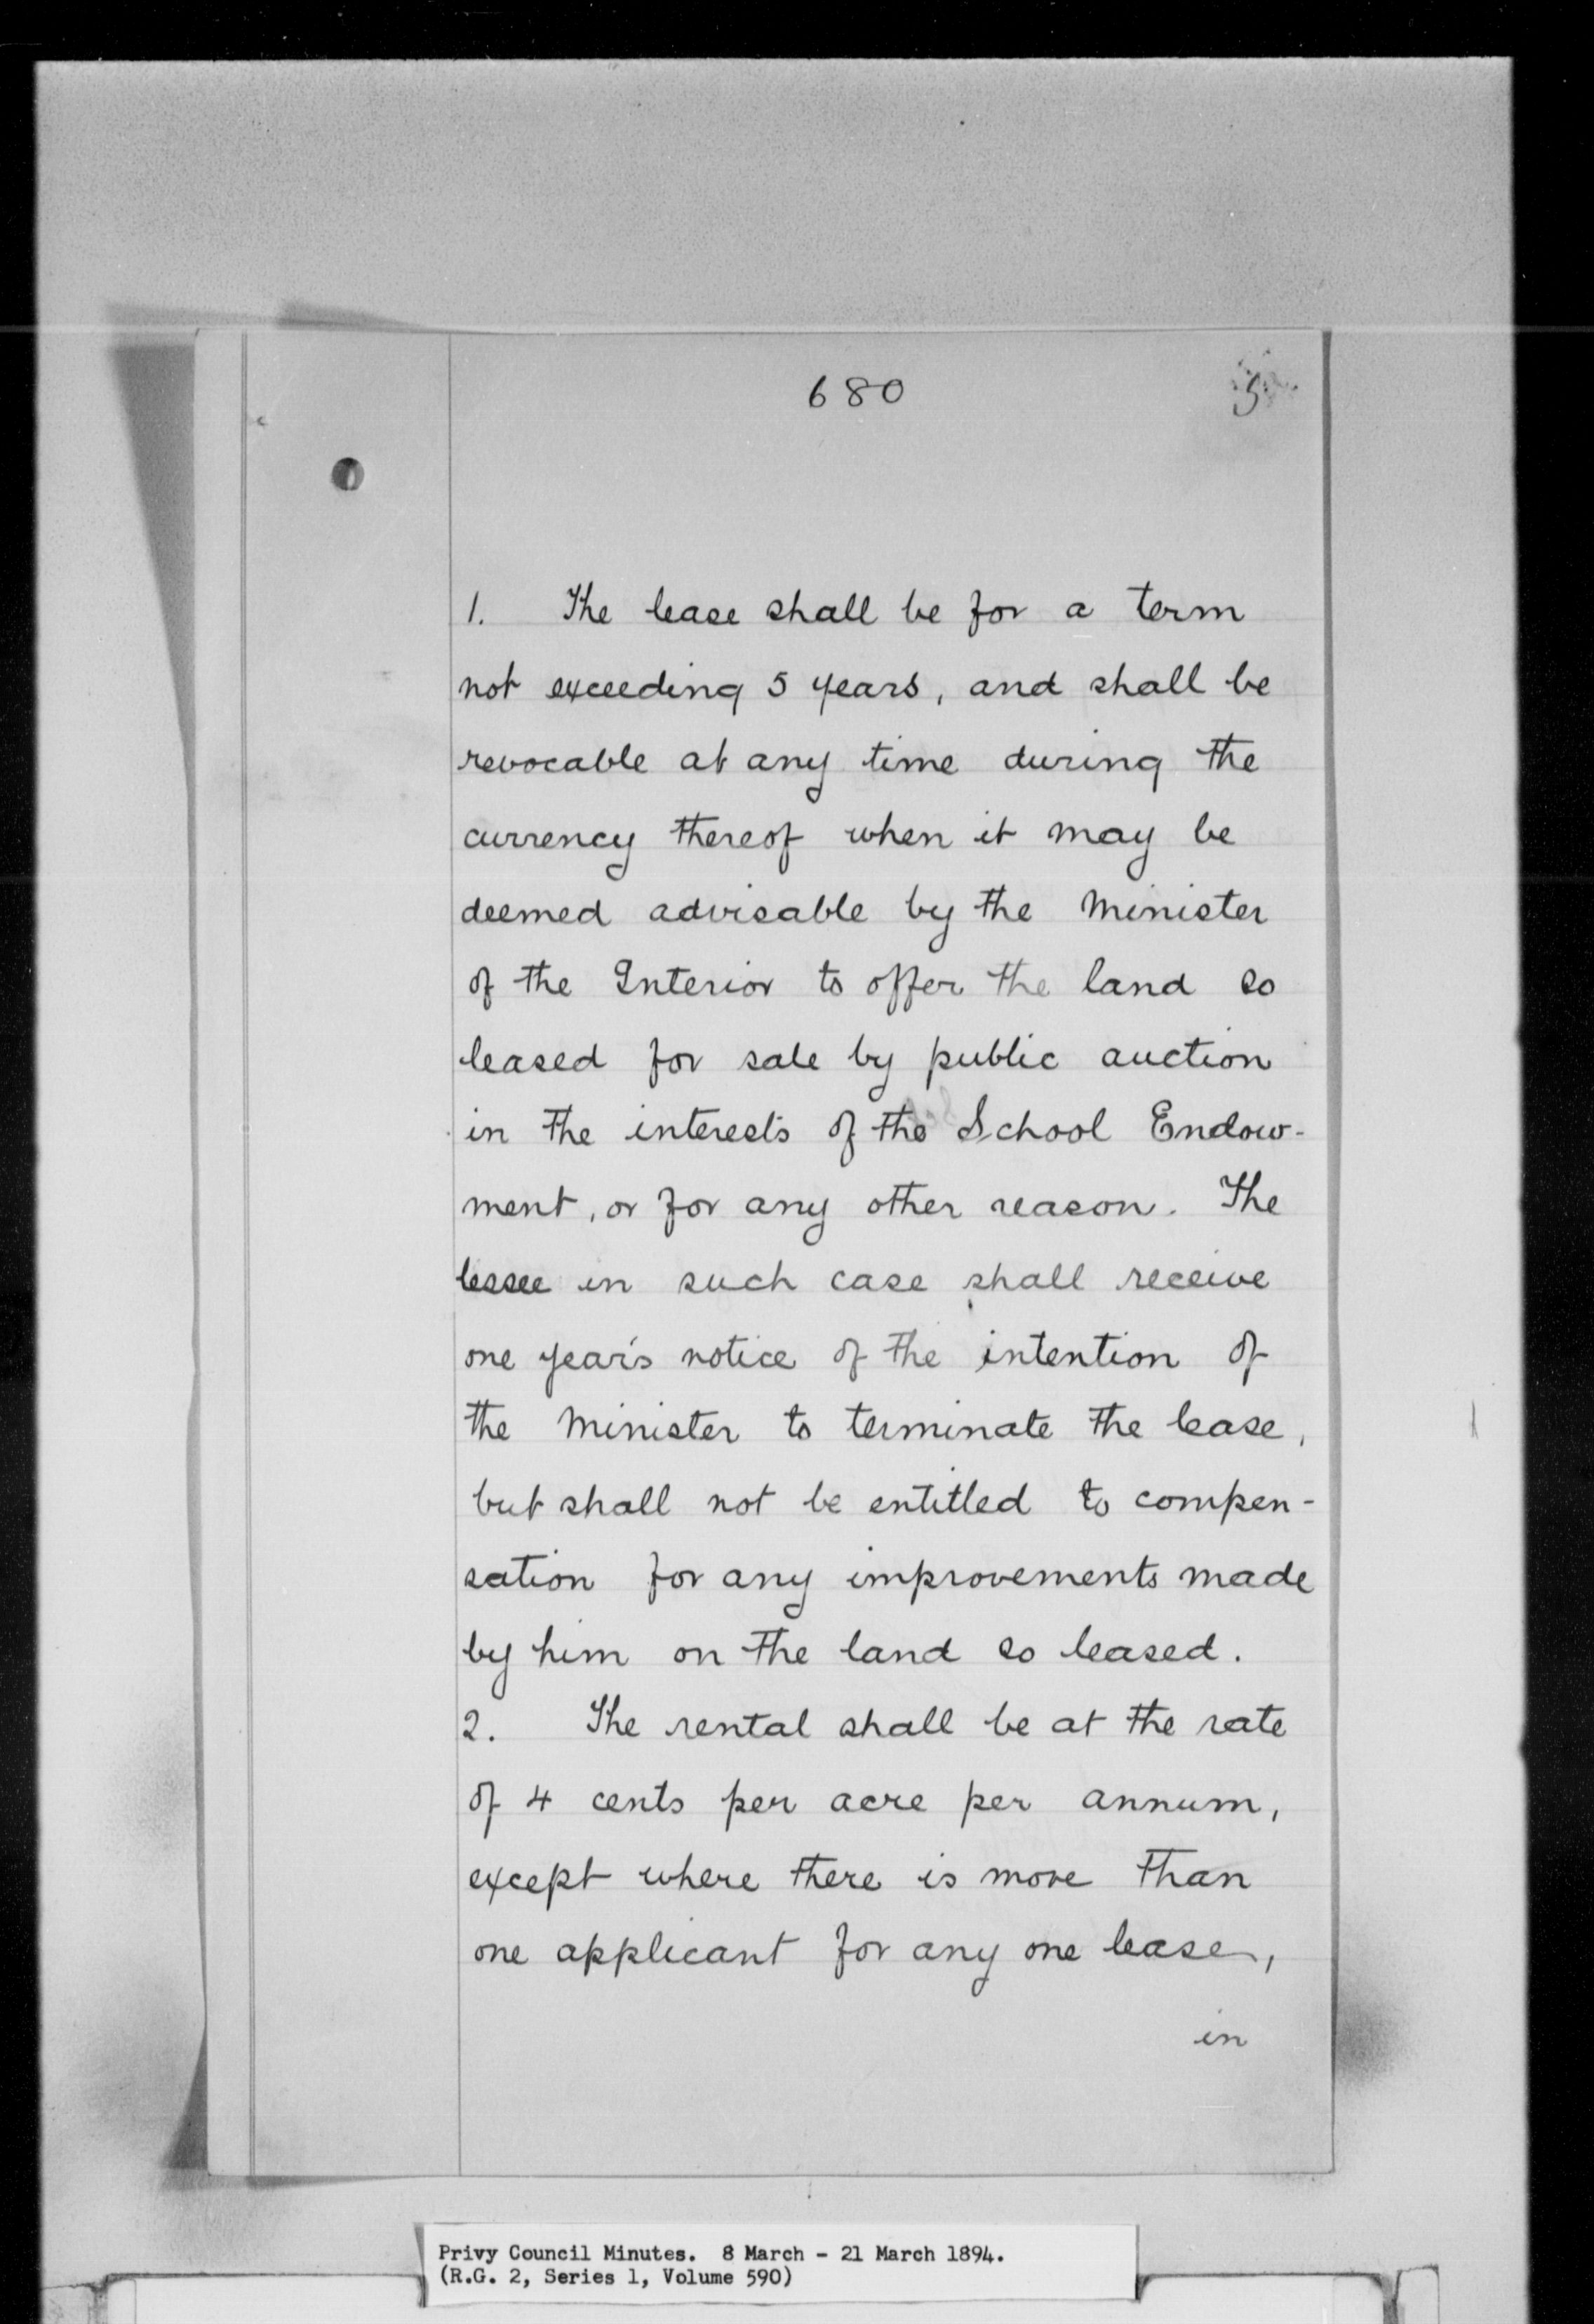 680
1. The lease shall be for a term
not exceeding 5 years, and shall be
revocable at any time during the
currency thereof when it may be
deemed advisable by the Minister
of the Interior to offer the land so
leased for sale by public auction
in the interests of the School Endow-
ment, or for any other reason. The
lessee in such case shall receive
one year's notice of the intention of
the Minister to terminate the lease,
but shall not be entitled to compen-
sation for any improvements made
by him on the land so leased.
2. The rental shall be at the rate
of 4 cents per acre per annum,
except where there is more than
one applicant for any one lease,
in
Privy Council Minutes. 8 March - 21 March 1894.
(R.G. 2, Series 1, Volume 590)